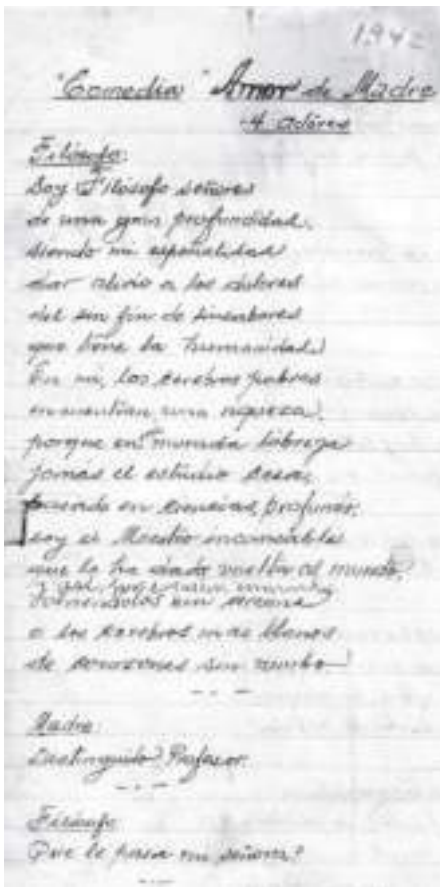 1942
"Comedia" Amor de Madre
4 actores
Filósofo:
Soy Filósofo señores
de una gran profundidad,
siendo mi
dar alivio a los dolores
del sin fin de sinsabores
que tiene la humanidad!
En mi, los cerebros pobres
encuentran una riqueza!
porque en morada lobreja
jamas el estudio cesa,
basado en ciencias, profundo,
soy el Maestro incansable
que le ha dado vuelta al mundo,
y
a los cerebros mas llenos
de corazones sin rumbo!
Madre:
Distinguido Profesor.
Filósofo
Que le pasa mi señora?